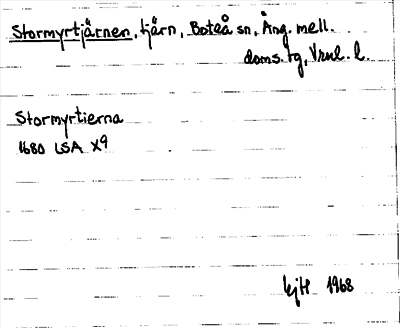 Stormyrtjärnen, tjärn, Boteå sn, Ång. mell.
doms. tg, Vrnl. l.
Stormyrtierna
1680 LSA X9
1968